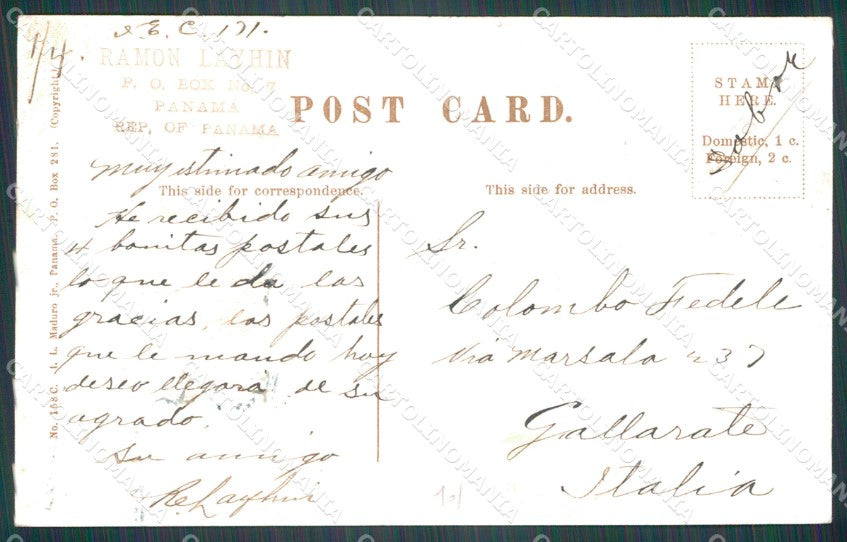 1/4.
I.E.C. 171.
RAMON LAYHIN
P. O. BOX No. 7
PANAMA
REP. OF PANAMA
POST CARD.
STAMP
HERE.
Domestic, 1 c.
Foreign, 2 c.
This side for correspondence.
This side for address.
muy estimado amigo
He recibido sus
4 bonitas postales
lo que le da las
gracias, las postales
que le mando hoy
deseo llegara de su
agrado.
su amigo
R. Layhin
Sr.
Colombo Fedele
Via Marsala n 37
Gallarate
Italia
No. 158 C. I. L. Maduro jr., Panama. P. O. Box 281. (Copyright)
CARTOLINOMANIA